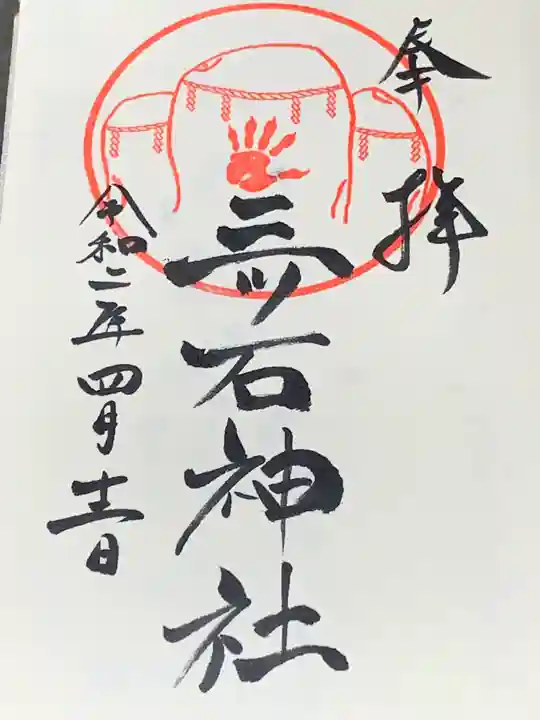 奉拝
三ツ石神社
令和二年四月十五日